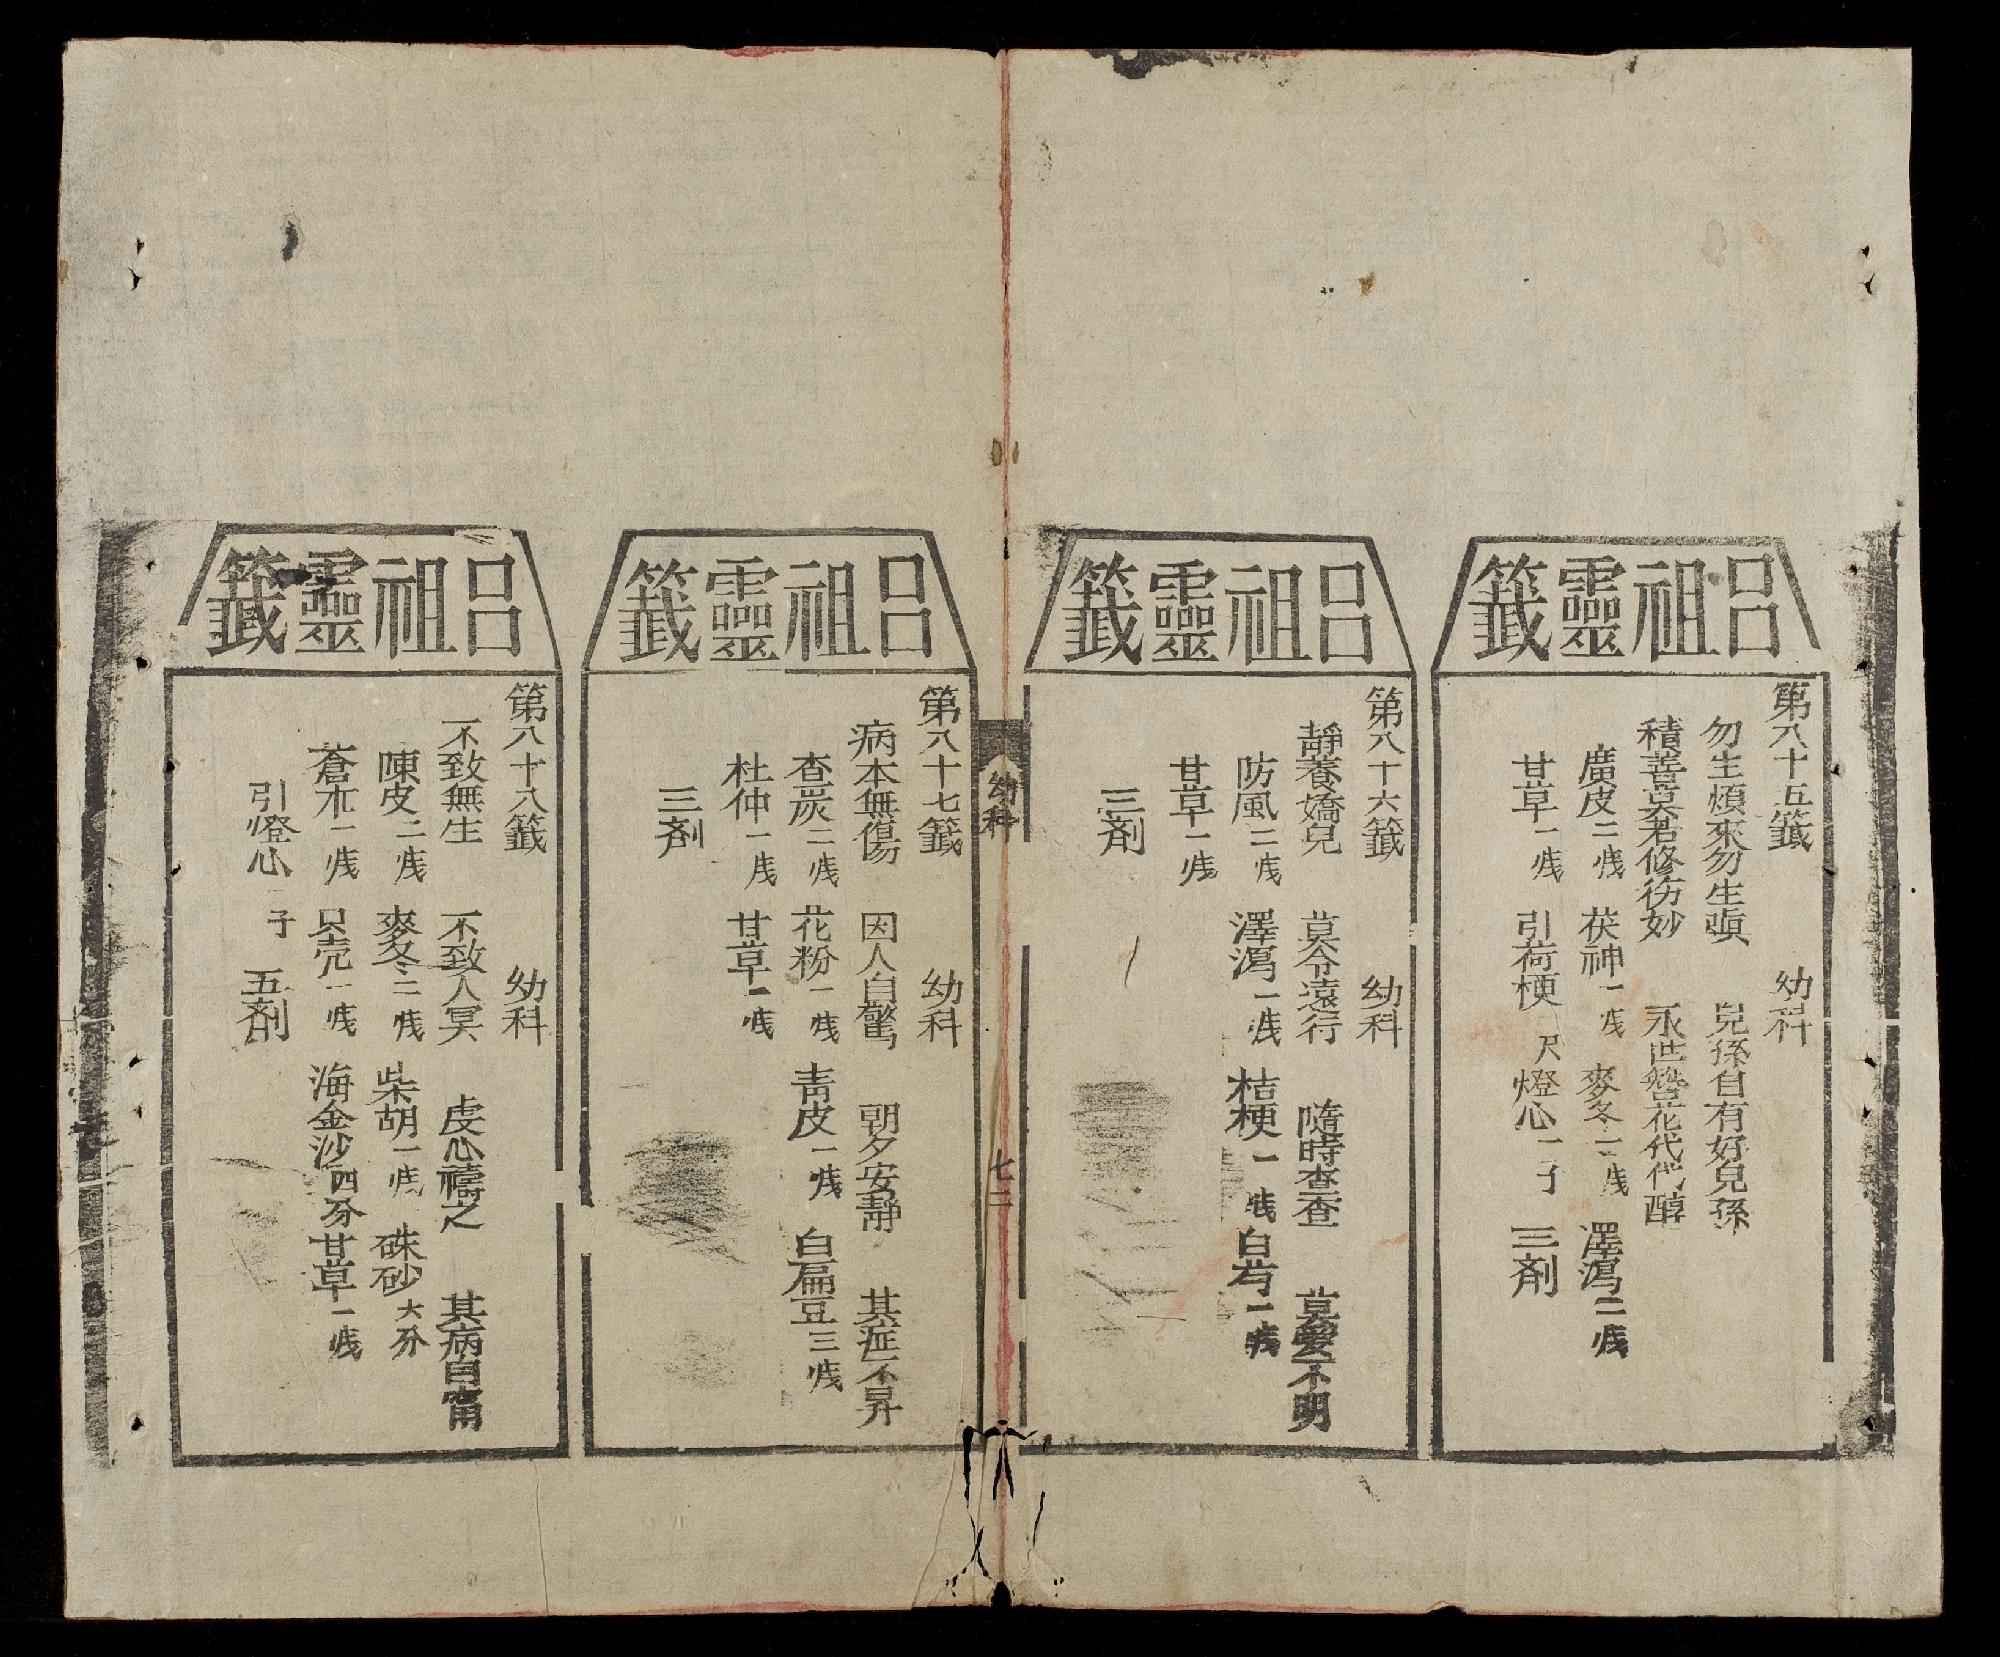 呂祖靈籤
第八十五籤　幼科
勿生煩來勿生嗔　兒孫自有好兒孫
積善莫若修彷妙　永世簪花代代醇
廣皮二戋　茯神一戋　麥冬一戋　澤瀉二戋
甘草一戋　引荷梗尺　燈心一子　三剤
呂祖靈籤
第八十六籤　幼科
靜養嬌兒　莫令遠行　隨時查查　莫愛不明
防風二戋　澤瀉一戋　桔梗一戋　白芍一戋
甘草一戋
三剤
幼科
七二
呂祖靈籤
第八十七籤　幼科
病本無傷　因人自驚　朝夕安靜　其症不昇
查炭二戋　花粉一戋　青皮一戋　白扁豆三戋
杜仲一戋　甘草一戋
三剤
呂祖靈籤
第八十八籤　幼科
不致無生　不致人冥　虔心禱之　其病自甯
陳皮二戋　麥冬二戋　柴胡一戋　硃砂六分
蒼朮一戋　只壳一戋　海金沙四分　甘草一戋
引燈心一子　五剤